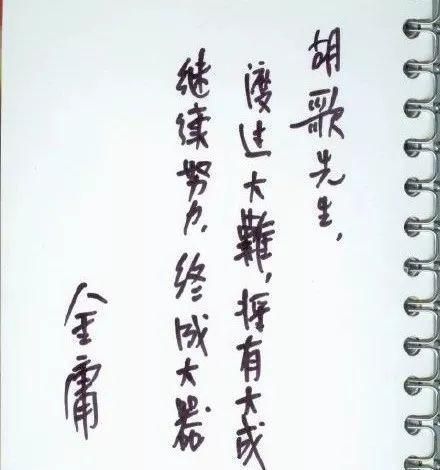 胡歌先生，
渡过大難，擁有大成
继续努力，终成大器
金庸